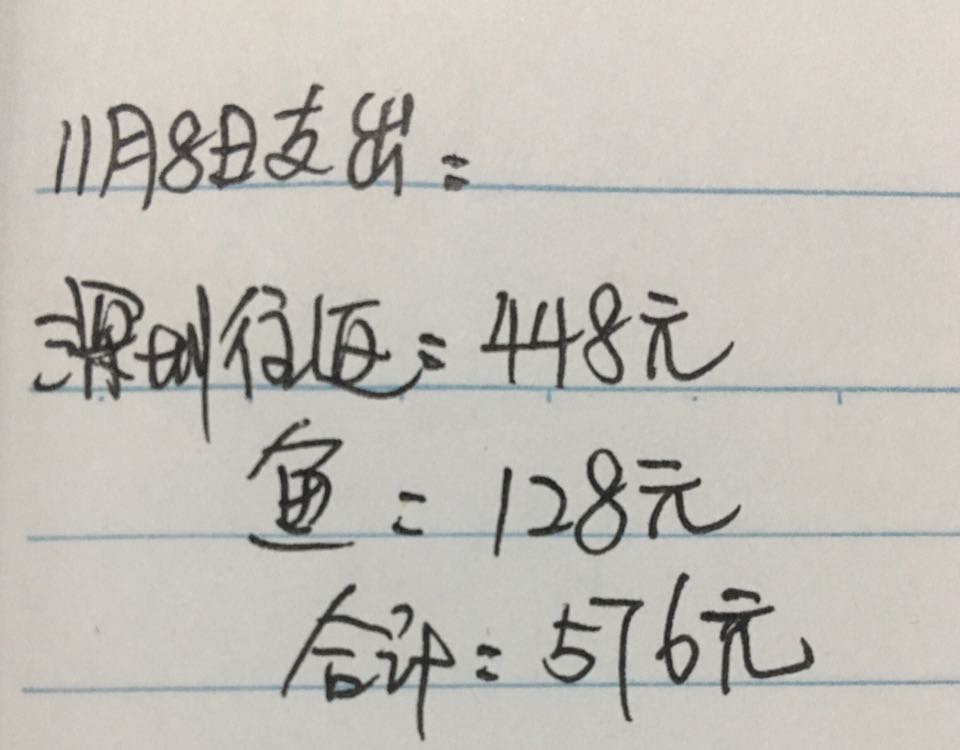 11月8日支出:
深圳往返:448元
鱼:128元
合计:576元